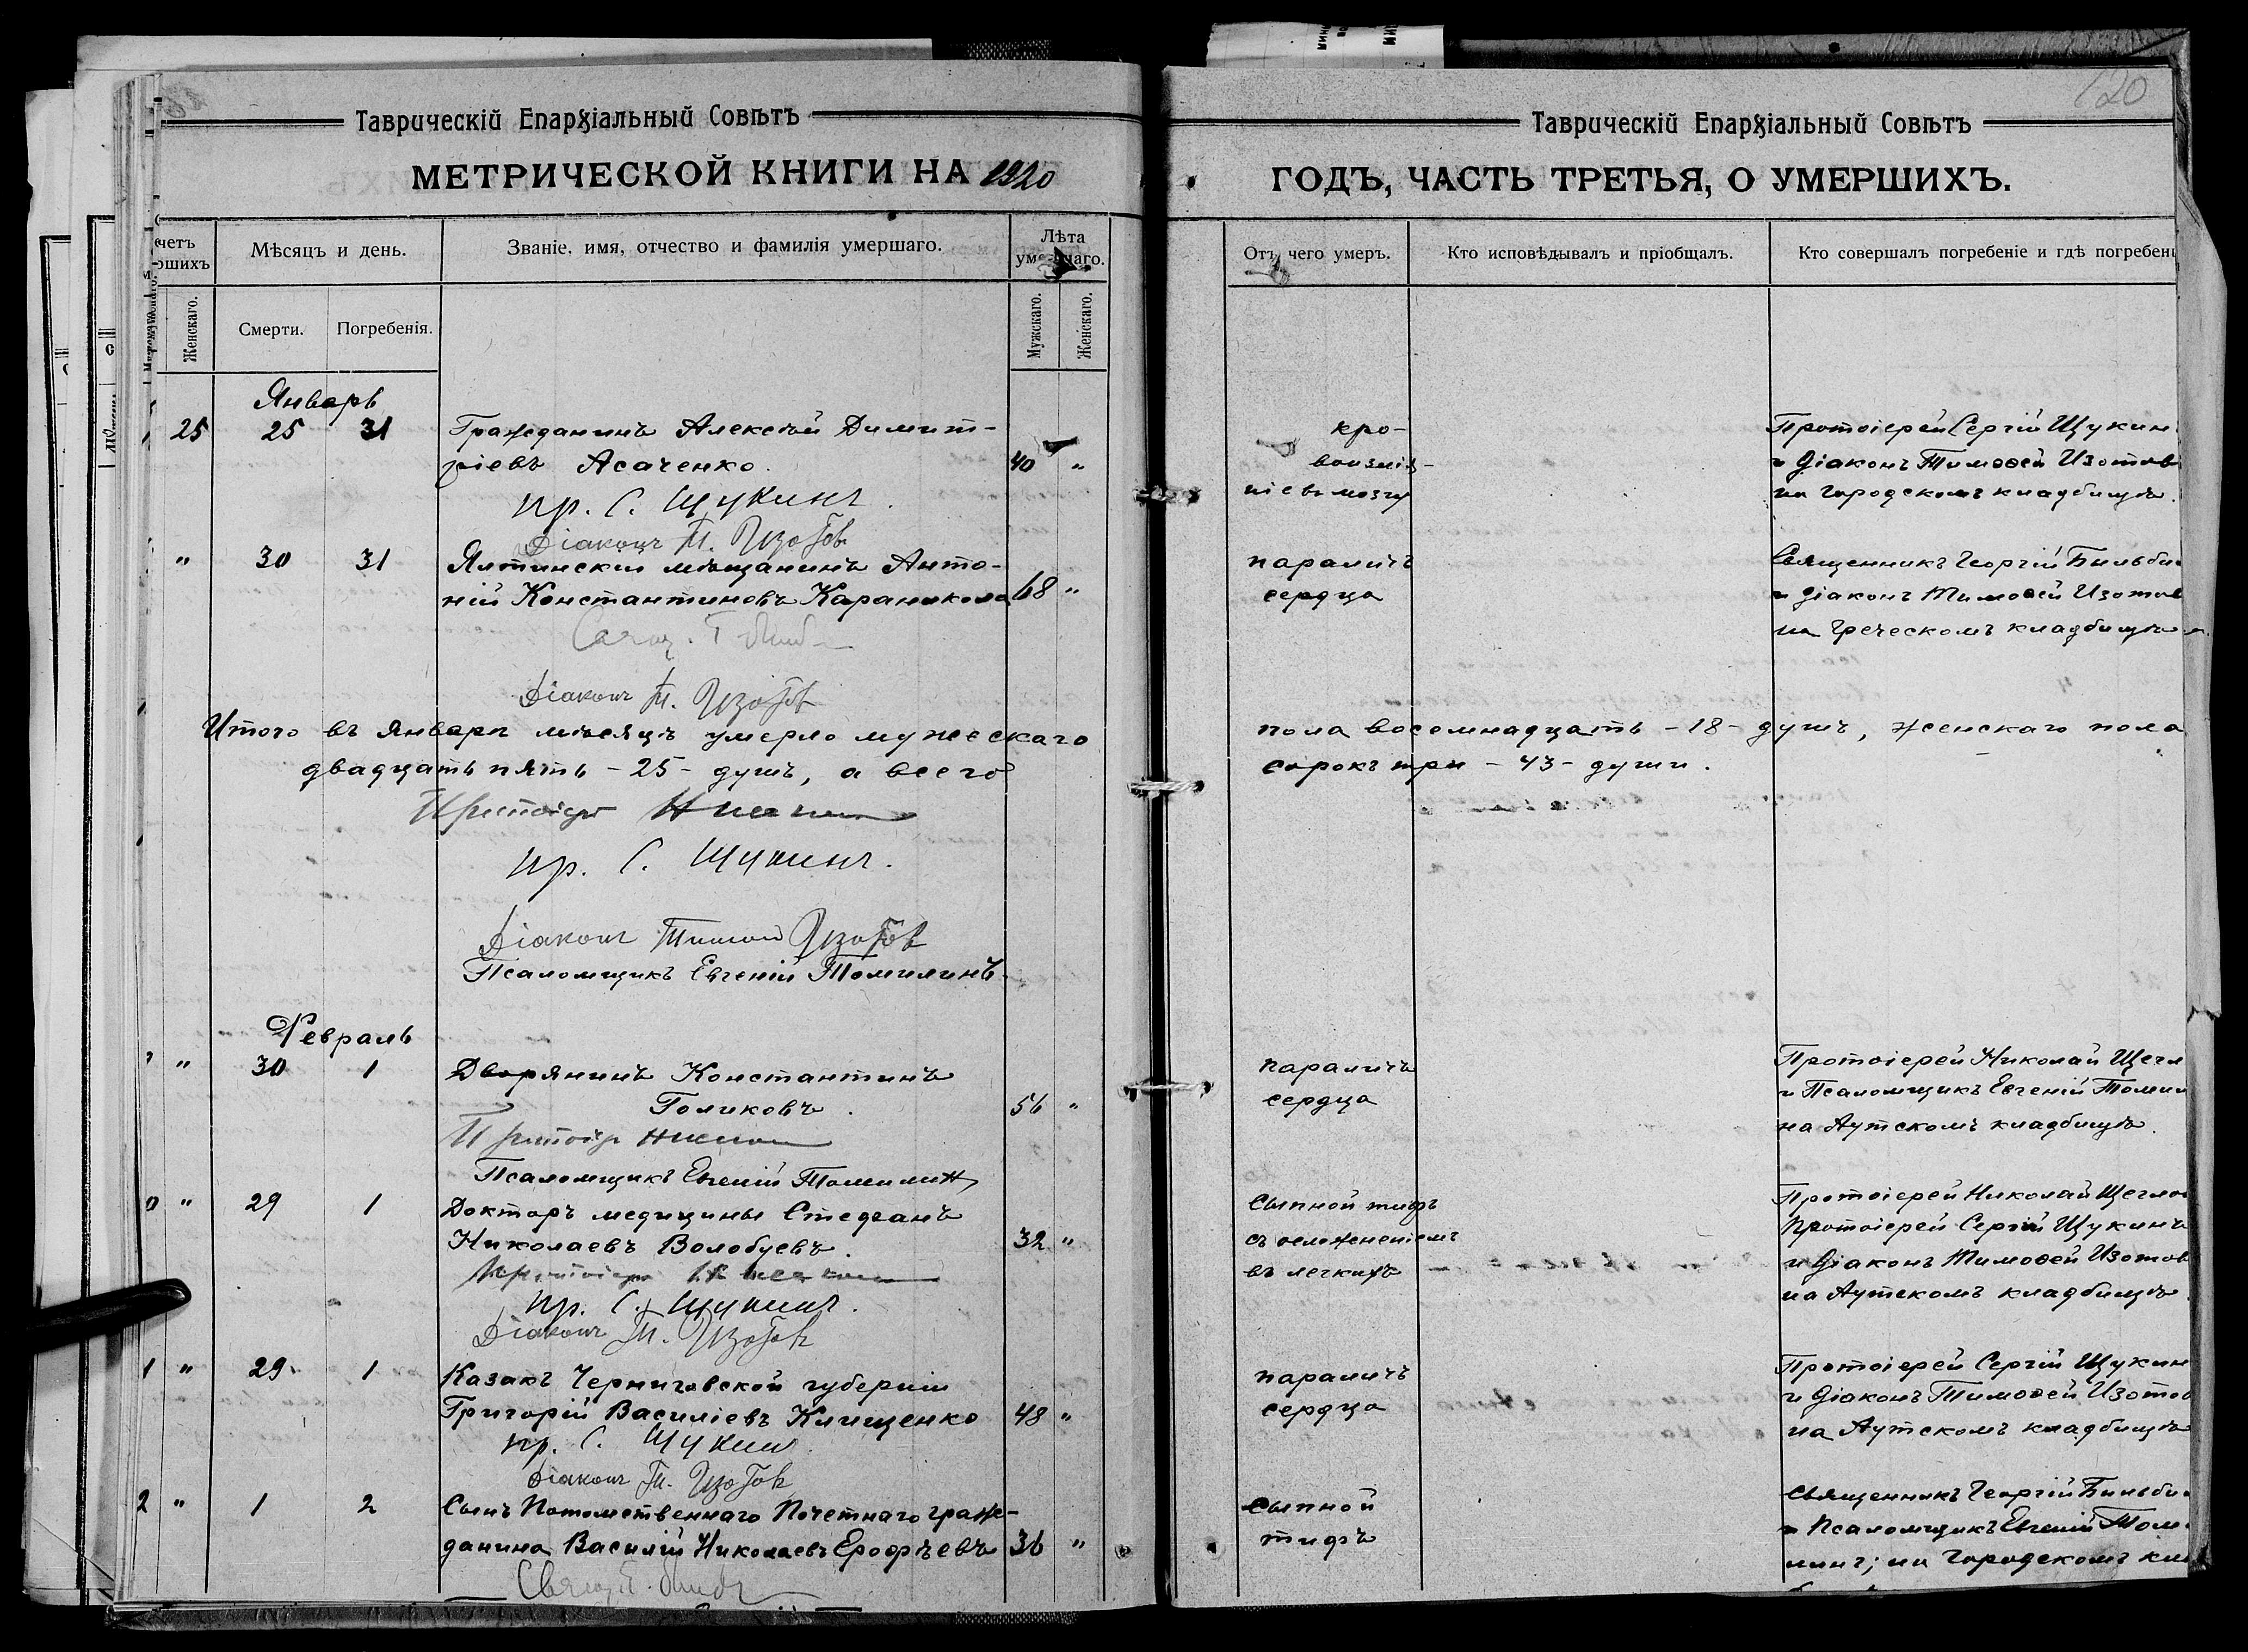 120
Таврическій Епархіальный Совѣтъ
МЕТРИЧЕСКОЙ КНИГИ НА 1920
четъ
ршихъ
Мѣсяцъ и день.
Званіе, имя, отчество и фамилія умершаго.
Лѣта
умершаго.
Женскаго.
Смерти.
Погребенія.
Мужскаго.
Женскаго.
Январь
25 25 31 Гражданинъ Алексѣй Димит-
ріевъ Асаченко. 40 "
пр. С. Щукинъ.
Діаконъ Т. Изотов
" 30 31 Ялтинскій мѣщанинъ Анто-
ній Константиновъ Караникола 68 "
Діаконъ Т. Изотов
Итого въ январѣ мѣсяцѣ умерло мужескаго
двадцать пять - 25 - душъ, а всего
Протоіерей
пр. С. Щукинъ.
Діаконъ Тимоѳей Изотов
Псаломщикъ Евгеній Томилинъ.
Февраль
" 30 1 Дворянинъ Константинъ
Голиковъ. 56 "
Протоіерей
Псаломщикъ Евгеній Томилин
0 " 29 1 Докторъ медицины Стефанъ
Николаевъ Волобуевъ. 32 "
Протоіерей
пр. С. Щукинъ.
Діаконъ Т. Изотовъ
1 " 29 1 Казакъ Черниговской губерніи
Григорій Василіевъ Клищенко 48 "
пр. С. Щукин
Діаконъ Т. Изотовъ
2 " 1 2 Сынъ Потомственнаго Почетнаго граж-
данина Василій Николаевъ Ерофѣевъ 36 "
Таврическій Епархіальный Совѣтъ
ГОДЪ, ЧАСТЬ ТРЕТЬЯ, О УМЕРШИХЪ.
Отъ чего умеръ.
Кто исповѣдывалъ и пріобщалъ.
Кто совершалъ погребеніе и гдѣ погребен
кро-
воизлія-
ніе въ мозгу
Протоіерей Сергій Щукин
и діаконъ Тимоѳей Изотов
на городскомъ кладбищѣ.
параличъ
сердца
Священникъ Георгій Бильби
и діаконъ Тимоѳей Изотов
на греческомъ кладбищѣ
пола восемнадцать - 18 - душъ, женскаго пола
сорокъ три - 43 - души.
параличъ
сердца
Протоіерей Николай Щегл
и Псаломщикъ Евгеній Томил
на Аутскомъ кладбищѣ.
сыпной тифъ
съ осложненіемъ
въ легкихъ
Протоіерей Николай Щегло
Протоіерей Сергій Щукинъ
и діаконъ Тимоѳей Изотов
на Аутскомъ кладбищѣ
параличъ
сердца
Протоіерей Сергій Щукин
и діаконъ Тимоѳей Изотов
на Аутскомъ кладбищѣ
сыпной
тифъ
священникъ Георгій Бильби
и Псаломщикъ Евгеній Томи
линъ; на городскомъ кла